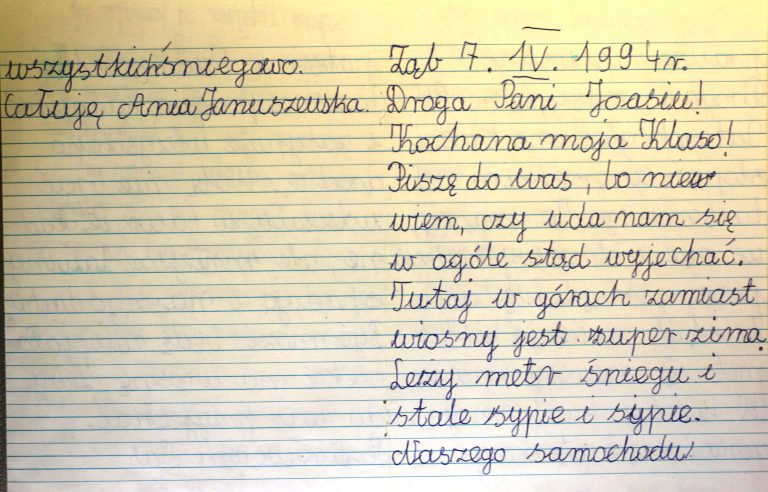 wszystkich śniegowo.
Całuję, Ania Januszewska.
Ząb 7. IV. 1994r.
Droga Pani Joasiu!
Kochana moja Klaso!
Piszę do was, bo nie
wiem, czy uda nam się
w ogóle stąd wyjechać.
Tutaj w górach zamiast
wiosny jest super zima.
Leży metr śniegu i
stale sypie i sypie.
Naszego samochodu